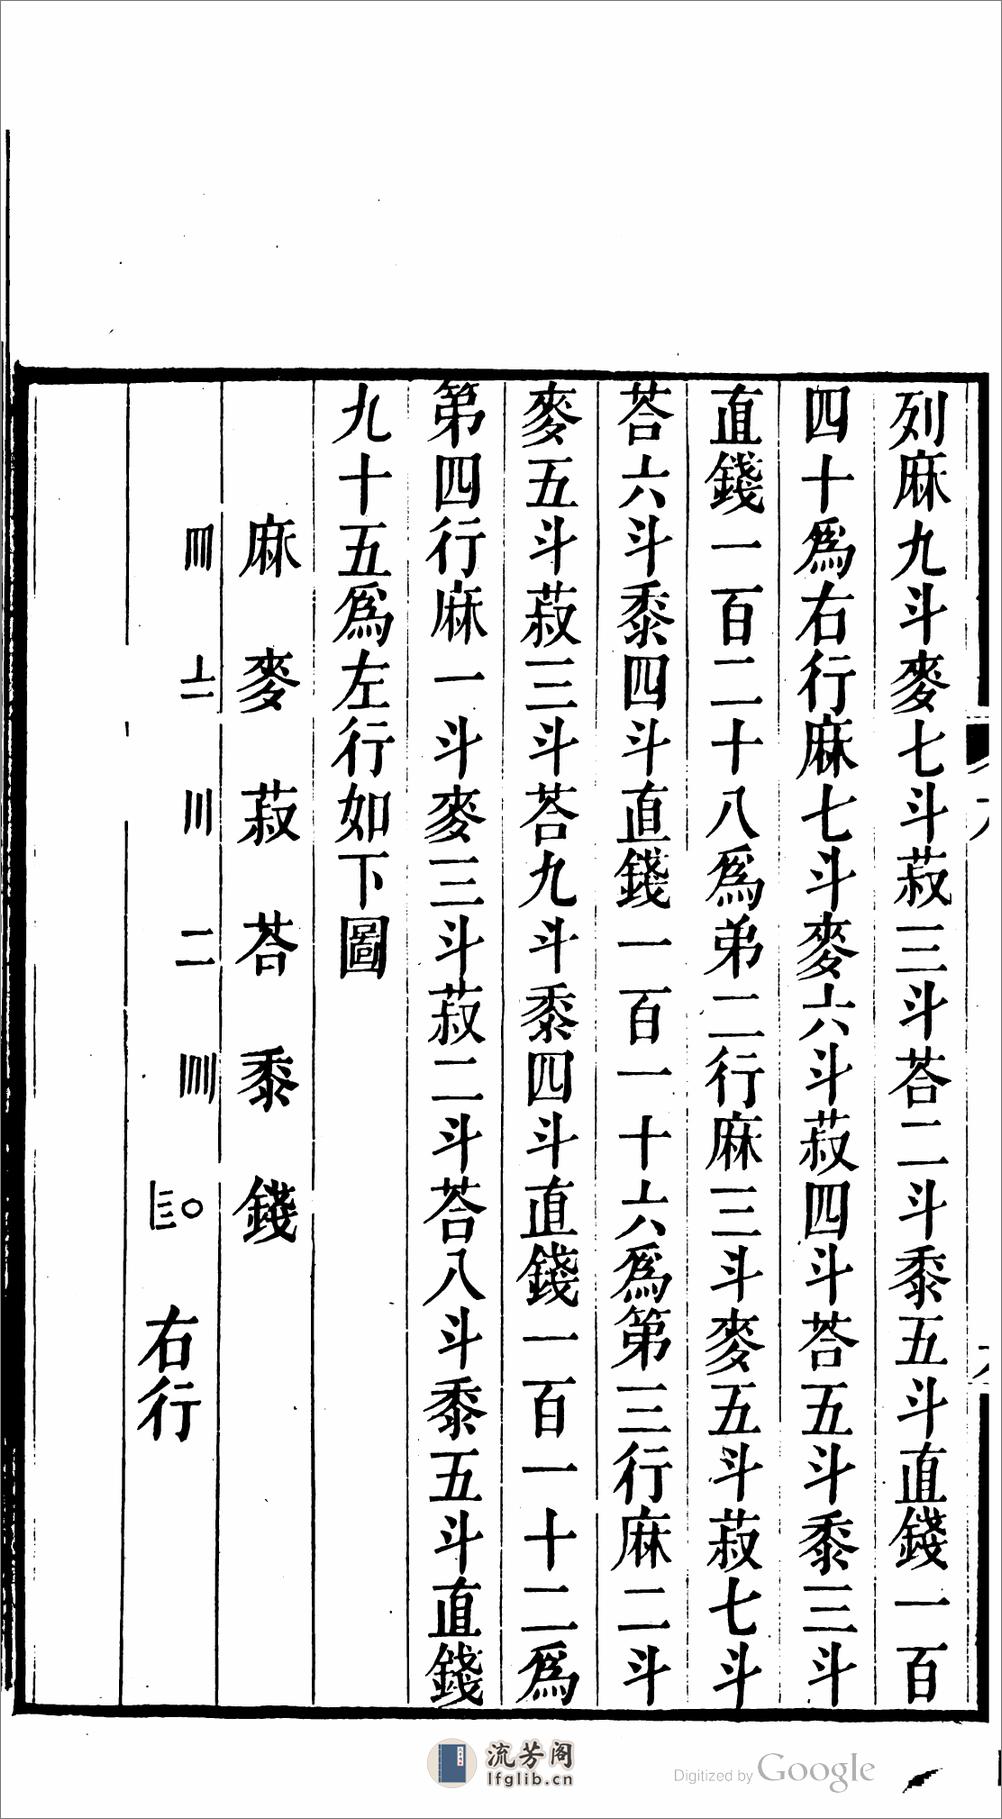 列麻九斗麥七斗菽三斗荅二斗黍五斗直錢一百
四十爲右行麻七斗麥六斗菽四斗荅五斗黍三斗
直錢一百二十八爲弟二行麻三斗麥五斗菽七斗
荅六斗黍四斗直錢一百一十六爲第三行麻二斗
麥五斗菽三斗荅九斗黍四斗直錢一百一十二爲
第四行麻一斗麥三斗菽二斗荅八斗黍五斗直錢
九十五爲左行如下圖
麻 麥 菽 荅 黍 錢
𝍱 𝍦 𝍫 二 𝍭 𝍩𝍣〇 右行
流芳阁
lfglib.cn
Digitized by Google